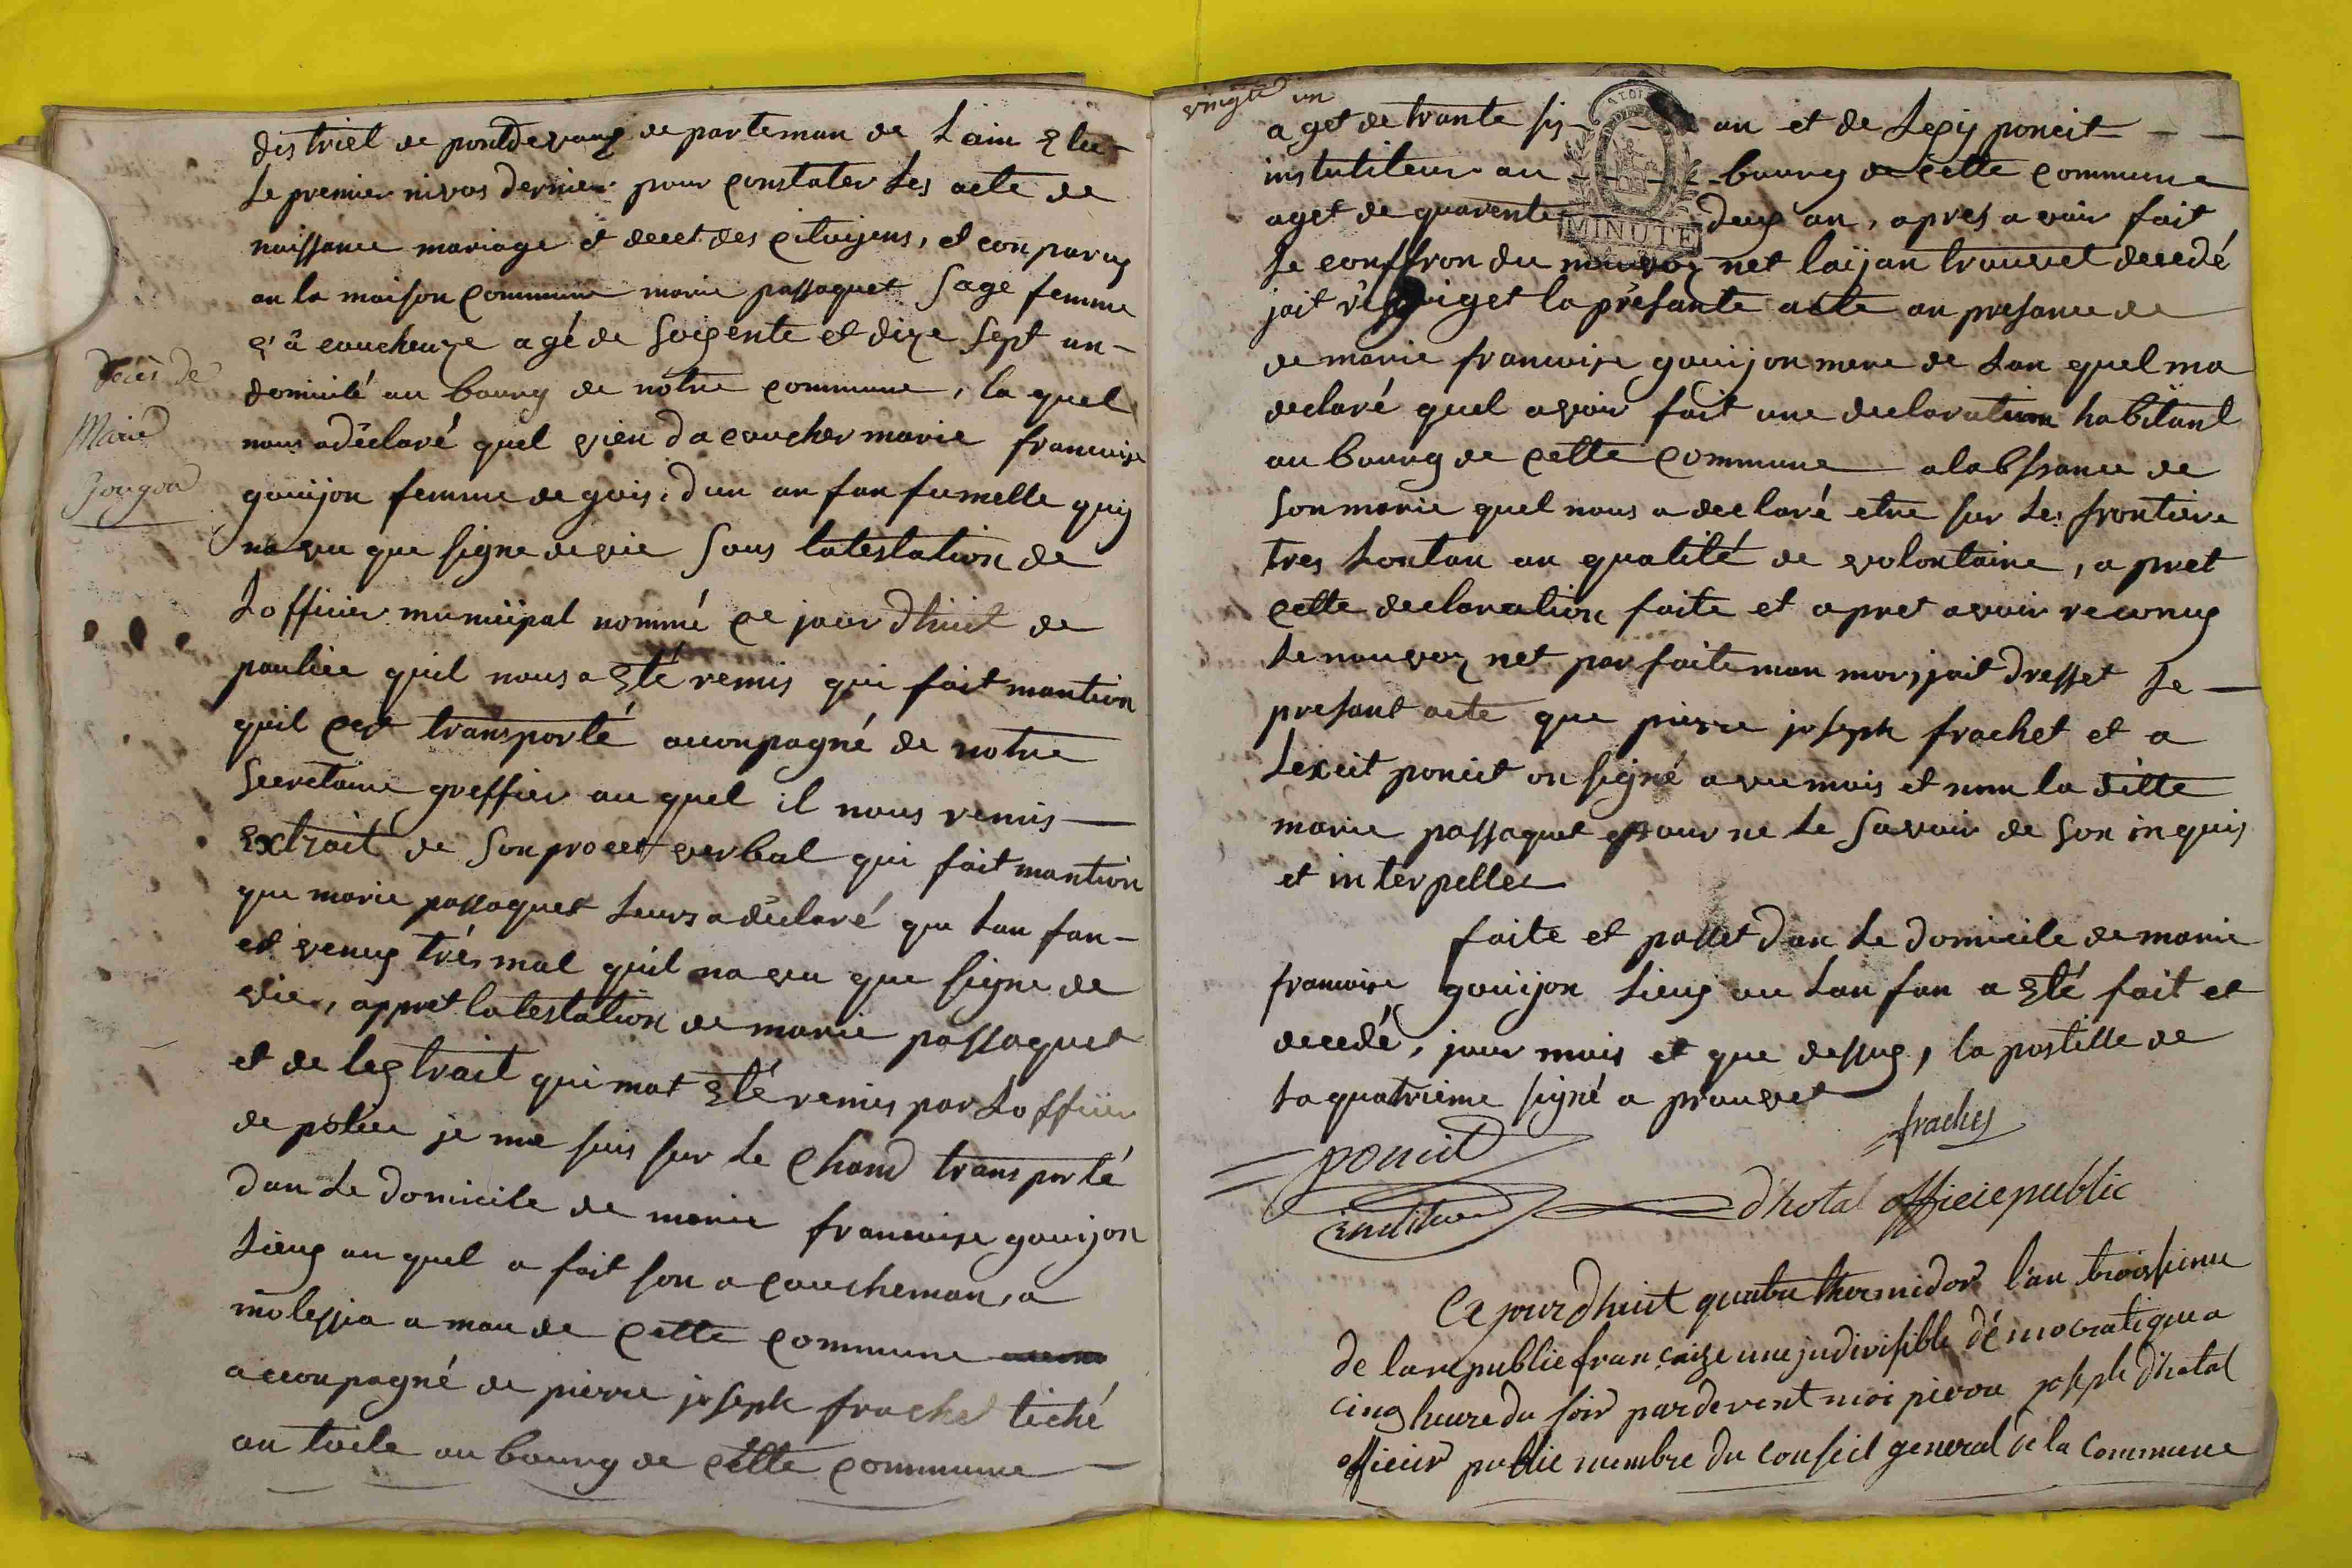 district de pontdevaux de parteman de Lain Elu
Le premier nivos dernier pour constater Les acte de
naissance mariage et decet des citoijens, et conparuy
an la maison commune marie passaquet Sage femme
acoucheuze agé de soigente et dize sept an
Décès de
domicilé au bourg de notre commune, la quel
Marie
nous a déclaré quel vien da coucher marie francoise
Gougon
gouijon femme de gois. dun an fan fumelle quy
na vu que signe de vie sous latestation de
Lofficier municipal nommé ce jour dhuit de
pouliee quil nous a Eté remis qui fait mantion
quil cet transporté aconpagné de notre
Secretaire greffier au quel il nous remis
Extrait de son procet verbal qui fait mantion
que marie passaquet Leurs a déclaré que Lan fan
et venuy trés mal quil na vu que signe de
vie, appret latestation de marie passaquet
et de lextrait qui mat Eté remis par Lofficier
de police je me suis sur le chand transporté
dan Le domicile de marie francoise gouijon
Lieuy au quel a fait son a coucheman, a
molessia a mau de cette commune
acconpagné de pierre joseph frachet tiché
an toile au bourg de cette commune
vingt un
aget de trante six an et de Lexij poncit
instutiteur au bourg de cette commune
MINUTE
aget de quarente deux an, apres avoir fait
Le conffron du nouvoz net laijan trouvet decedé
jait redigget la présante acte an presance de
de marie francoise gouijon mere de Lan quel ma
declaré quel avoir fait une declaration habitant
au bourg de cette commune a labssance de
son marie quel nous a declaré etre sur Les frontiere
tres Lontan an qualité de volontaire, a pret
cette declaration faite et apret avoir reconuy
Le nouvoz net parfaiteman mor, jait dresset Le
presant acte que pierre joseph frachet et a
Lexcit poncit on signé avec mois et non la ditte
marie passaquet pour ne Le savoir de son inquis
et interpellee
faite et passet dan Le domicile de marie
francoise gouijon Lieuy ou Lan fan a Eté fait et
decedé, jour mois et que dessuy, la postille de
La quatrieme signé a prouvet
frachey
poncit
dhotal officie public
Ce jourdhuit quatre thermidor l'an troissieme
de la republic francaize une indivisible démocratique a
cinq heure du soir pardevent moi pierre joseph dhotal
officier public membre du conseil general de la commune